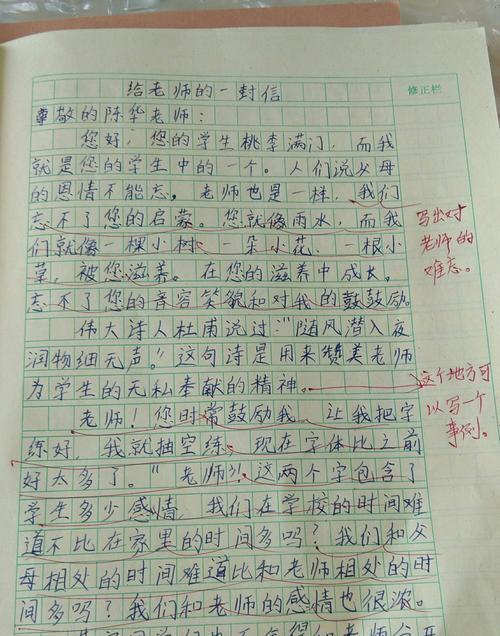 修正栏
给老师的一封信
尊敬的陈华老师：
您好，您的学生桃李满门，而我
就是您的学生中的一个。人们说父母
的恩情不能忘，老师也是一样，我们
忘不了您的启蒙。您就像雨水，而我
们就像一棵小树、一朵小花、一根小
草，被您滋养。在您的滋养中成长，
忘不了您的音容笑貌和对我的鼓鼓励。
写出对
老师的
难忘。
伟大诗人杜甫说过："随风潜入夜
润物细无声。"这句诗是用来赞美老师
为学生的无私奉献的精神。
这个地方可
以写一个
事例。
老师！您时常鼓励我，让我把字
练好，我就抽空练，现在字体比之前
好太多了。"老师"这两个字包含了
学生多少感情，我们在学校的时间难
道不比在家里的时间多吗？我们和父
母相处的时间难道比和老师相处的时
间多吗？我们和老师的感情也很浓。